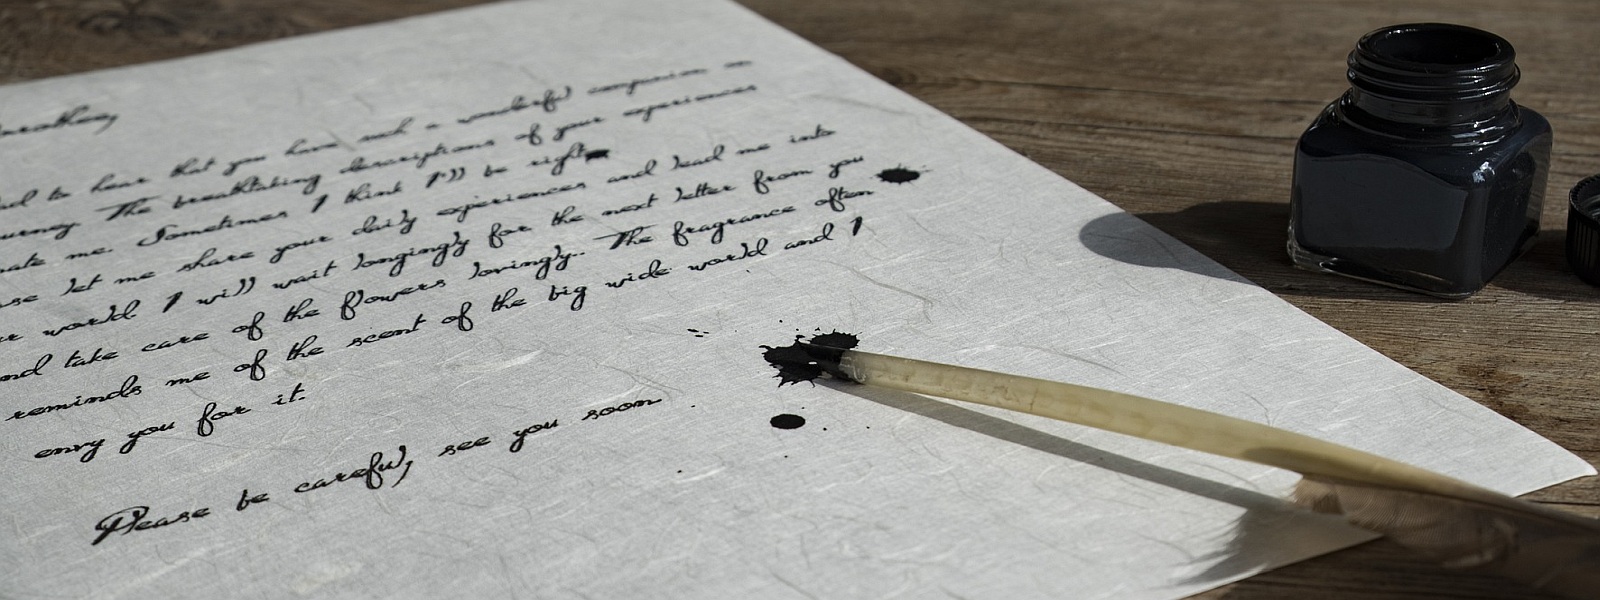 hear that you have such a wonderful companion on
The breathtaking descriptions of your experiences
me. Sometimes I think I'll be right
let me share your daily experiences and lead me into
world. I will wait longingly for the next letter from you
take care of the flowers lovingly.. The fragrance often
reminds me of the scent of the big wide world and I
envy you for it.
Please be careful, see you soon